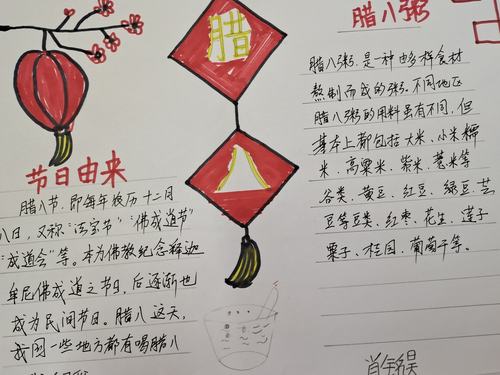 节日由来
腊八节,即每年农历十二月
八日,又称“法宝节”“佛成道节”
“成道会”等。本为佛教纪念释迦
牟尼佛成道之节日,后逐渐也
成为民间节日。腊八这天,
我国一些地方都有喝腊八
腊
八
腊八粥
腊八粥,是一种由多样食材
熬制而成的粥。不同地区
腊八粥的用料虽有不同,但
基本上都包括大米、小米糯
米、高粱米、紫米、薏米等
谷类,黄豆、红豆、绿豆、芸
豆等豆类,红枣、花生、莲子
栗子、桂圆、葡萄干等。